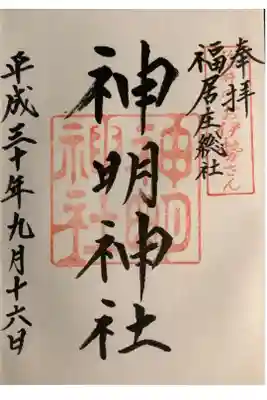 奉拝
福居庄総社
神明神社
平成三十年九月十六日
神明
神社